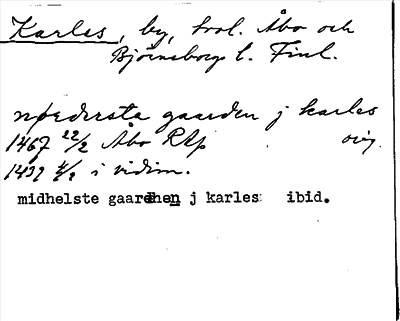 Karles, by, trol. Åbo och
Björneborgs l. Finl.
nørdersta gaarden j karles
1467 22/2 Åbo RAp orig.
1439 4/2 i vidim.
midhelste gaardhen j karles ibid.